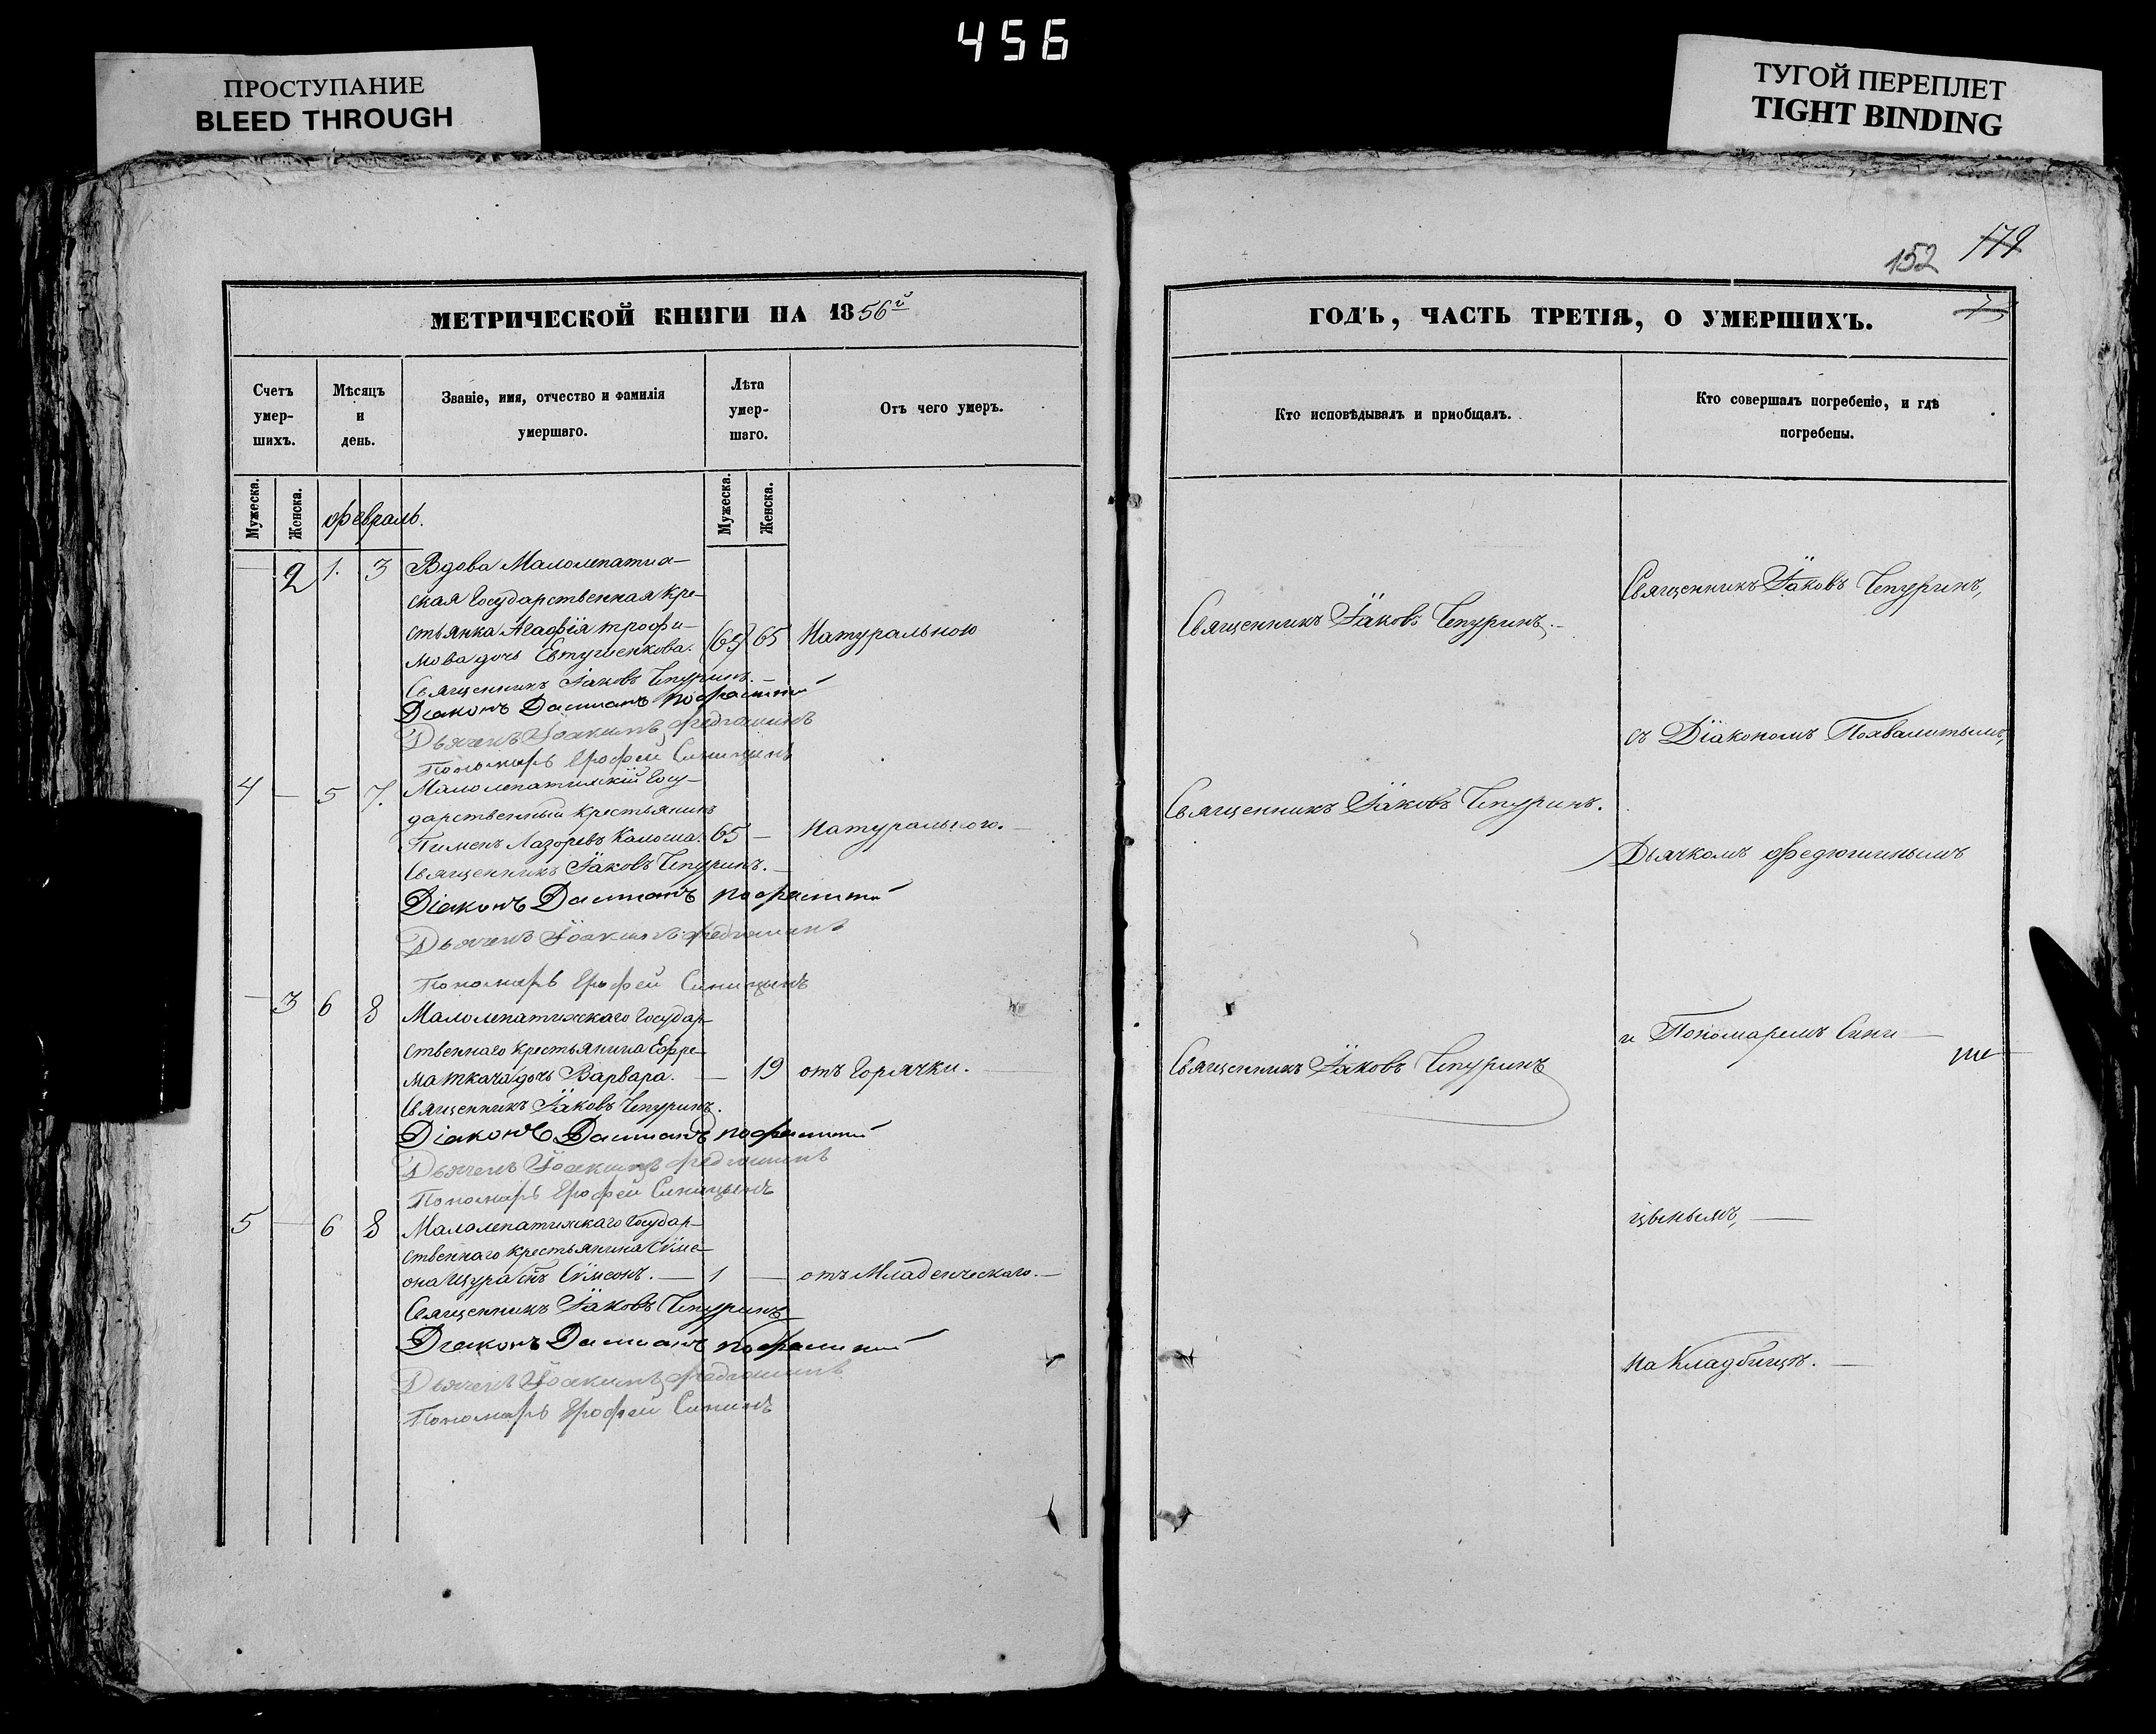 456
ПРОСТУПАНИЕ
BLEED THROUGH
ТУГОЙ ПЕРЕПЛЕТ
TIGHT BINDING
МЕТРИЧЕСКОЙ КНИГИ НА 1856й
Счетъ умер-шихъ.
Мѣсяцъ и день.
Званіе, имя, отчество и фамилія умершаго.
Лѣта умер-шаго.
Отъ чего умеръ.
Мужеска.
Женска.
февраль.
Мужеска.
Женска.
2 1. 3 Вдова Малолепатиха-
ская Государственная кре-
стьянка Агафія трофи-
мова дочь Евтушенкова. (65) 65 Натуральною
Священникъ Іаковъ Чепуринъ.
Діаконъ Даміанъ
Дьячекъ Іоакимъ Федюшинъ
Пономарь Ерофей Синицынъ
4 — 5 7. Малолепатихскій Госу-
дарственный крестьянинъ
Пименъ Лазоревъ Калоша. 65 — Натуральною.
Священникъ Іаковъ Чепуринъ.
Діаконъ Даміанъ
Дьячекъ Іоакимъ Федюшинъ
Пономарь Ерофей Синицынъ
— 3 6 8 Малолепатихскаго Государ-
ственнаго крестьянина Ефре-
ма ткача дочь Варвара. — 19 отъ Горячки.
Священникъ Іаковъ Чепуринъ.
Діаконъ Даміанъ
Дьячекъ Іоакимъ Федюшинъ
Пономарь Ерофей Синицынъ
5 — 6 8 Малалепатихскаго Государ-
ственнаго крестьянина Сѵме-
она Щура сынъ Сѵмеонъ. — 1 — отъ Младенческаго.
Священникъ Іаковъ Чепуринъ
Діаконъ Даміанъ
Дьячекъ Іоакимъ Федюшинъ
Пономарь Ерофей
152 179
ГОДЪ, ЧАСТЬ ТРЕТІЯ, О УМЕРШИХЪ.
Кто исповѣдывалъ и пріобщалъ.
Кто совершалъ погребеніе, и гдѣ погребены.
Священникъ Іаковъ Чепуринъ.
Священникъ Іаковъ Чепуринъ.
Священникъ Іаковъ Чепуринъ
Священникъ Іаковъ Чепуринъ,
съ Діакономъ Похвалитымъ,
Дьячкомъ Федюшинымъ
и Пономаремъ Сини-
цынымъ,
на Кладбищѣ.